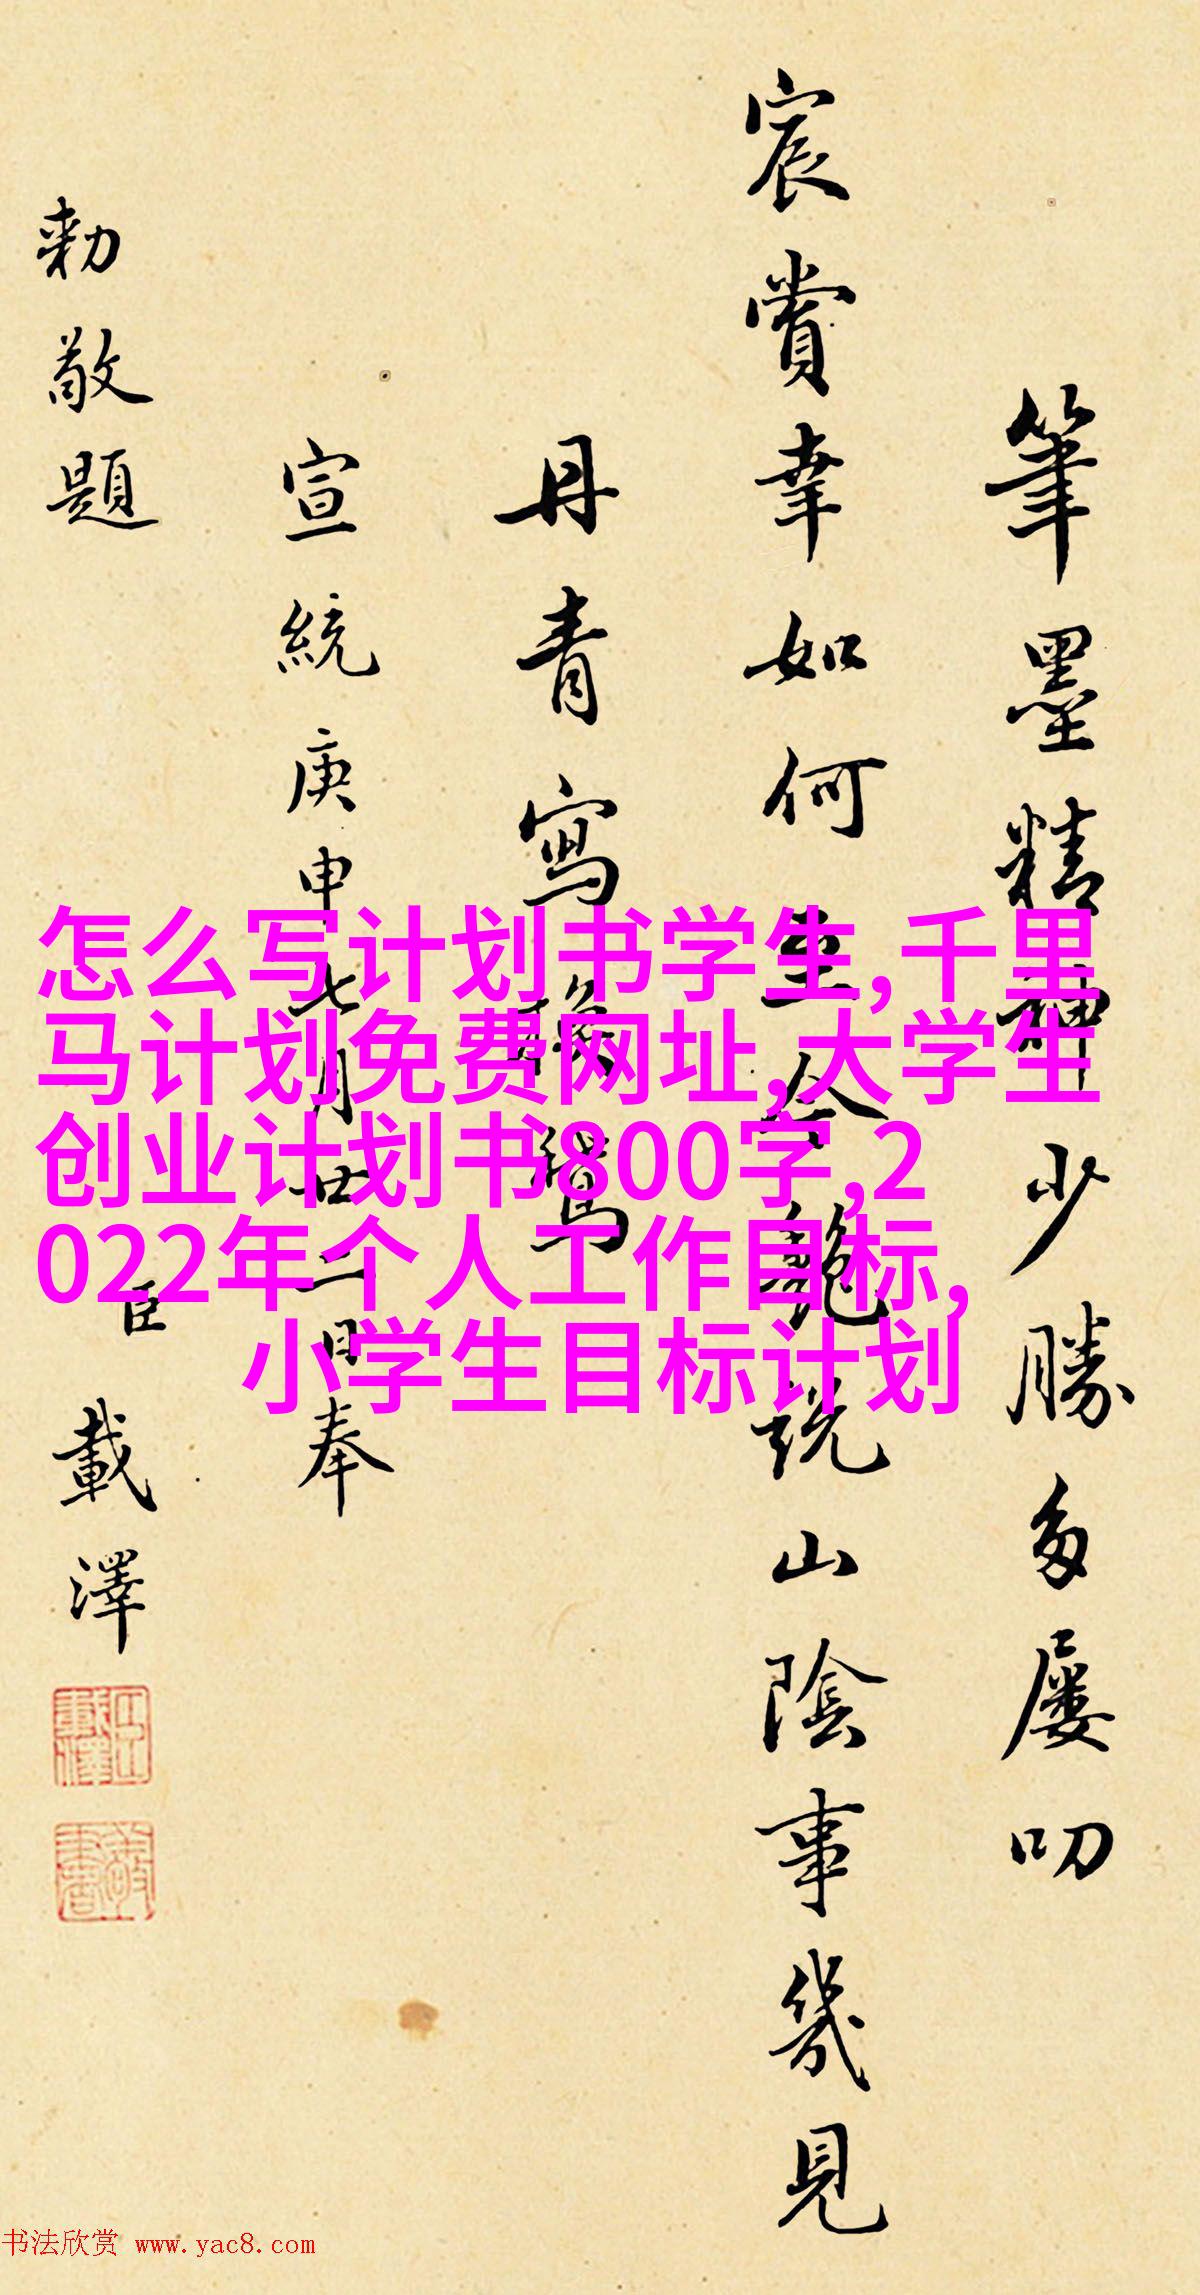 筆墨精神少勝多屢叨
宸賞幸如何至今艷說山陰事幾見
丹青寫換鵞
宣統庚申七月廿二日奉
勅敬題 臣 載澤
怎么写计划书学生,千里
马计划免费网址,大学生
创业计划书800字,2
022年个人工作目标,
小学生目标计划
书法欣赏 www.yac8.com